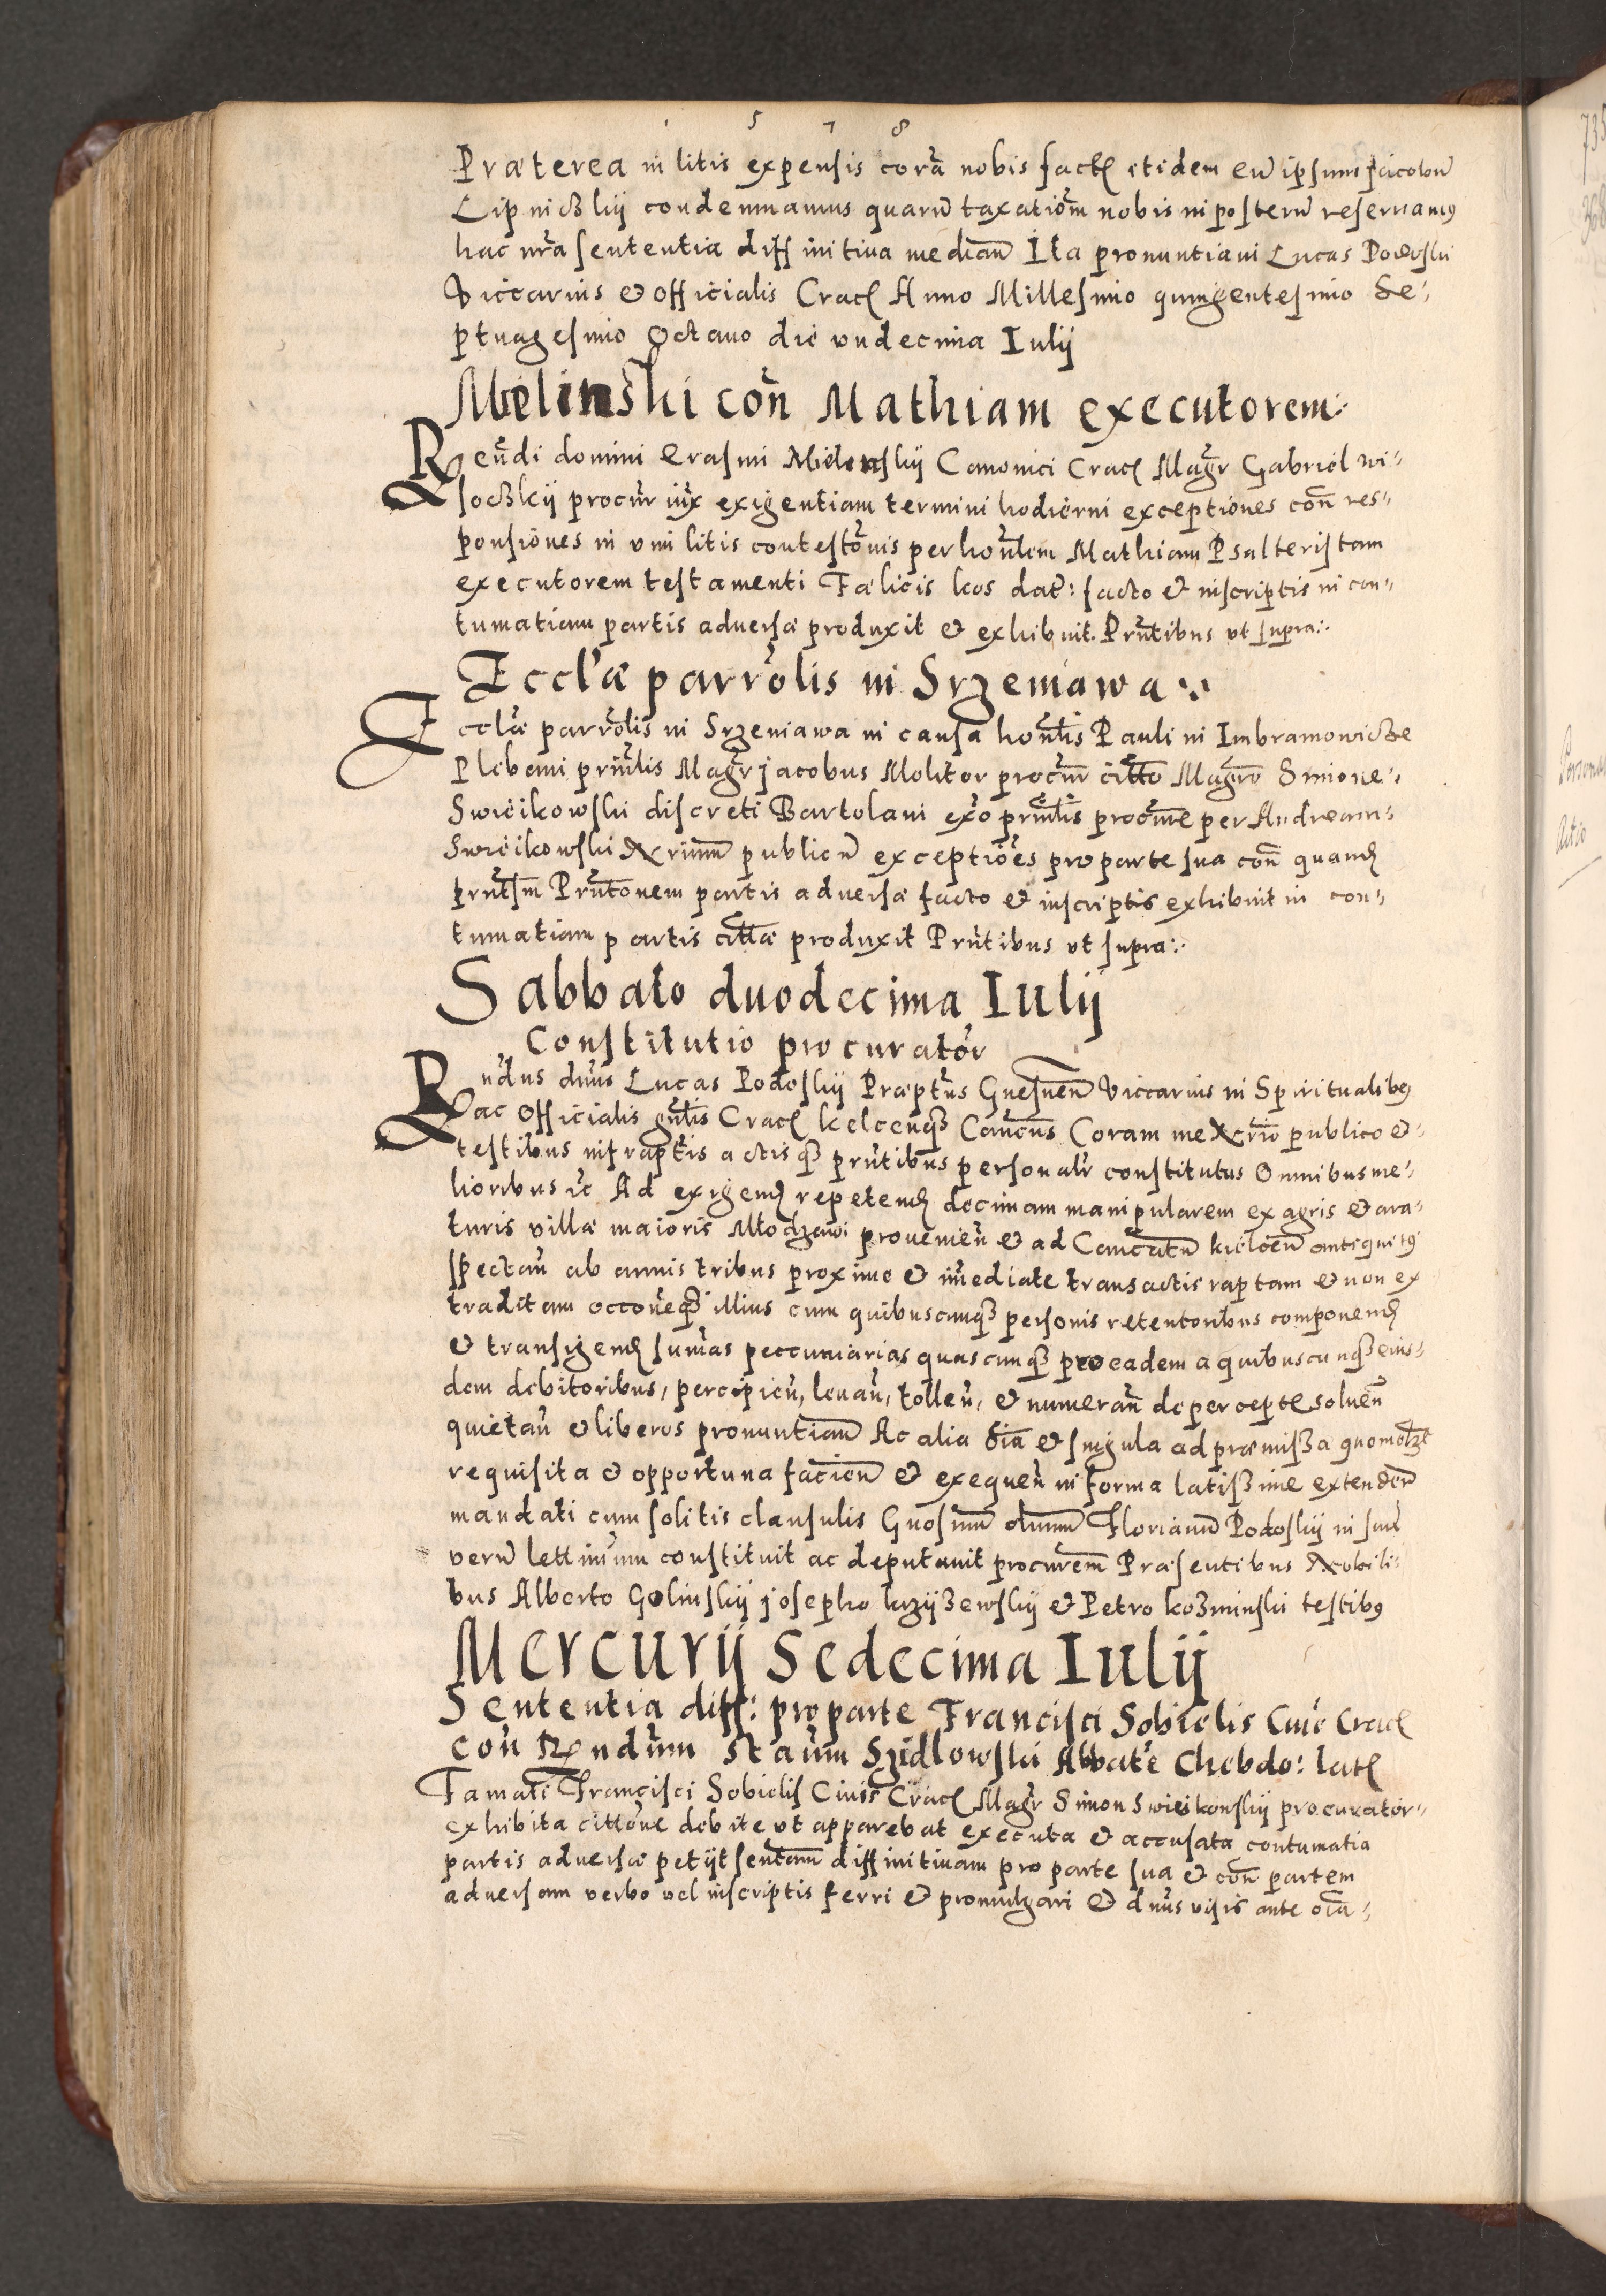 1 5 7 8
Præterea in litis expensis corã nobis fact itidem eũ ipsum Jacobũ
Lipniczkij condemnamus quarũ taxatiõm nobis in posterũ reseruamus
hac nr̃a sententia diffinitiua median̄ Ita pronuntiaui Lucas Podoski
Viccarius & Officialis Crac Anno Millesimo quingentesimo Se,,
ptuagesimo Octauo die vndecima Iulij
Mielinski con̄ Mathiam executorem
Reũdi domini Erasmi Mielenskij Canonici Crac Magr̃ Gabriel wi,,
soczkij procur̃ iux̃ exigentiam termini hodierni exceptiones con̄ res,,
ponsiones in vim litis contestõnis per hon̄lem Mathiam Psalteristam
executorem testamenti Fælicis kos dat̃: facto & inscriptis in con,,
tumatiam partis aduersæ produxit & exhibuit. Prñtibus vt supra:
Eccl'æ parrõlis in Srzeniawa
Ecclæ parrõlis in Srzeniawa in causa hon̄lis Pauli in Imbramowicze
Plebani prin̄lis Magr̃ jacobus Molitor procur̃ citto Magrõ Simone,,
Swieikowski discreti Bartolani exõ prin̄lis procur̃e per Andream,,
Swieikowski Nrium̄ publicũ exceptiões pro parte sua con̄ quand
prñtsm̃ Prñtonem partis aduersæ facto & inscriptis exhibuit in con,,
tumatiam partis citt̃æ produxit Prñtibus vt supra:
Sabbato duodecima Iulij
Constitutio procurator̃
Rndus dñus Lucas Podoskij Præptũs Gnesnen̄ Viccarius in Spiritualibus
ac Officialis gñlis Crac kelcenq Cancus Coram me Nrio publico &
testibus infraptis actisq prñtibus personalr̃ constitutus Omnibus me,,
lioribus ic̃ Ad exigend repetend decimam manipularem ex agris & ara,,
turis villæ maioris Młodzawi prouenieñ & ad Cancatũ kielceñ antiquitus
spectañ ab annis tribus proxime & immediate transactis raptam & non ex
traditam occõneq illius cum quibuscunq personis retentoribus componend
& transigend sum̃as peccuniarias quascunq pro eadem a quibuscunq eius,,
dem debitoribus, percipieñ, leuañ, tolleñ, & numerañ de percepte solueñ
quietañ & liberos pronuntiañ Ac alia õia & singula ad præmissa quomolzt
requisita & opportuna facieñ & exequeñ in forma latissime extendeñ
mandati cum solitis clausulis Gnosum̄ dnum̄ Florianũ Podoskij in suũ
verũ lettimum constituit ac deputauit procurem̄ Præsentibus Nobili,
bus Alberto Golinskij josepho krzijzewskij & Petro kozminski testibus
Mercurij Sedecima Iulij
Sententia diff: pro parte Francisci Sobielis Ciuẽ Crac
con̄ Rndum Stañm Szidlowski Abbatẽ Chebdo: lat
Famati Francisci Sobielis Ciuis Crac Magr̃ Simon Swieikowskij procurator,,
exhibita cittõne debite vt apparebat executa & accusata contumatia
partis aduersæ petijt sentam̄ diffinitiuam pro parte sua & con̄ partem
aduersam verbo vel inscriptis ferri & promulgari & dñus visis ante oĩa,,